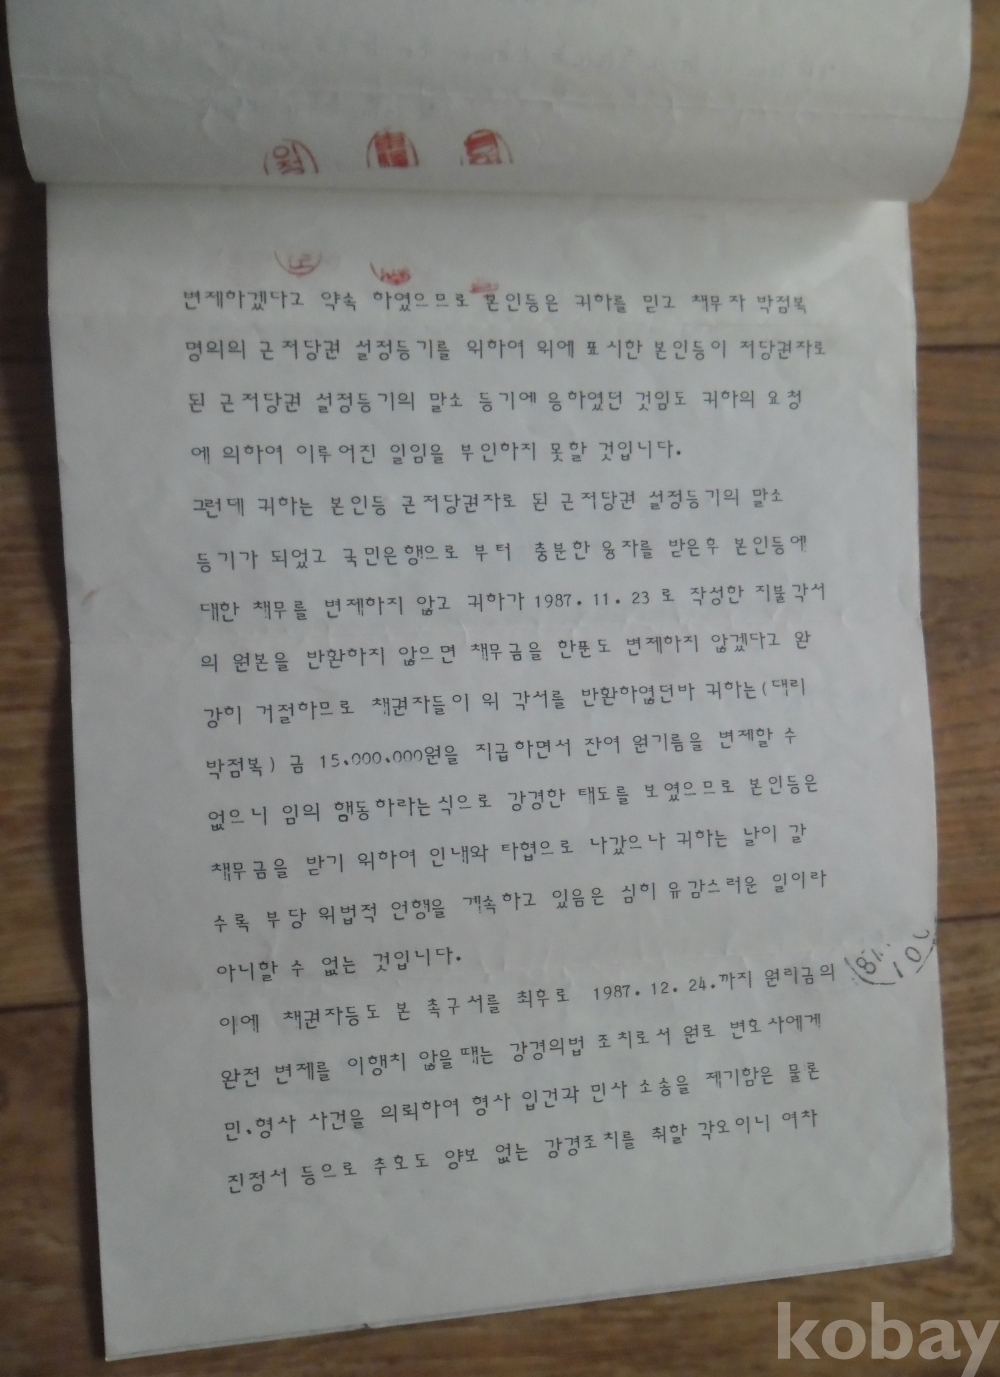 변제하겠다고 약속 하였으므로 본인등은 귀하를 믿고 채무자 박점복
명의의 근저당권 설정등기를 위하여 위에 표시한 본인등이 저당권자로
된 근저당권 설정등기의 말소 등기에 응하였던 것임도 귀하의 요청
에 의하여 이루어진 일임을 부인하지 못할 것입니다.
그런데 귀하는 본인등 근저당권자로 된 근저당권 설정등기의 말소
등기가 되었고 국민은행으로 부터 충분한 융자를 받은후 본인등에
대한 채무를 변제하지 않고 귀하가 1987. 11. 23 로 작성한 지불각서
의 원본을 반환하지 않으면 채무금을 한푼도 변제하지 않겠다고 완
강히 거절하므로 채권자들이 위 각서를 반환하였던바 귀하는(대리
박점복) 금 15.000.000원을 지급하면서 잔여 원기름을 변제할 수
없으니 임의 행동하라는식으로 강경한 태도를 보였으므로 본인등은
채무금을 받기 위하여 인내와 타협으로 나갔으나 귀하는 날이 갈
수록 부당 위법적 언행을 계속하고 있음은 심히 유감스러운 일이라
아니할 수 없는 것입니다.
이에 채권자등도 본 촉구서를 최후로 1987. 12. 24.까지 원리금의
완전 변제를 이행치 않을때는 강경의법 조치로서 원로 변호사에게
민.형사 사건을 의뢰하여 형사 입건과 민사 소송을 제기함은 물론
진정서 등으로 추호도 양보 없는 강경조치를 취할 각오이니 여차
kobay